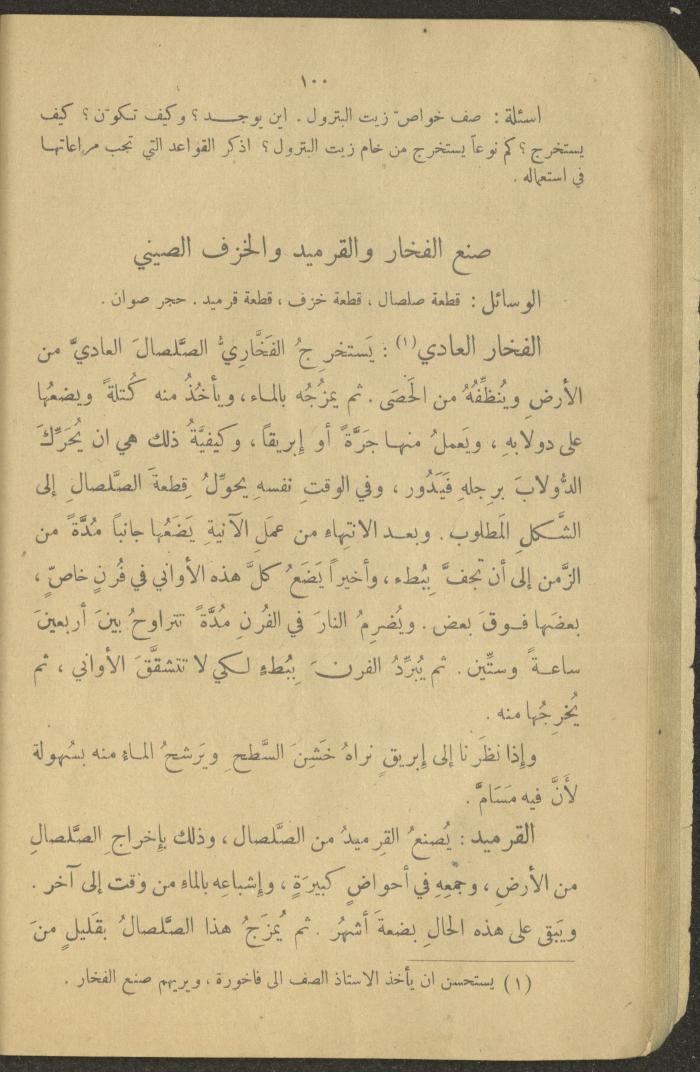 ١٠٠
اسئلة : صف خواصّ زيت البترول . اين يوجد ؟ وكيف تكوّن ؟ كيف
يستخرج ؟ كم نوعاً يستخرج من خام زيت البترول ؟ اذكر القواعد التي تجب مراعاتها
في استعماله .
صنع الفخار والقرميد والخزف الصيني
الوسائل : قطعة صلصال ، قطعة خزف ، قطعة قرميد . حجر صوان .
الفخار العادي (١) : يَستخرِجُ الفَخَّارِيُّ الصَّلصالَ العاديَّ من
الأرضِ ويُنظِّفُهُ من الحَصَى . ثم يمزُجُه بالماء ، ويأخُذُ منه كُتلةً ويضعُها
على دولابهِ ، ويَعملُ منها جَرَّةً أو إِبريقاً ، وكيفيَّةُ ذلك هي ان يُحَرِّكَ
الدُّولابَ برِجلهِ فَيَدُور ، وفي الوقتِ نفسهِ يحوِّلُ قِطعةَ الصَّلصالِ إلى
الشَّكلِ المَطلوب . وبعد الانتهاء من عمَلِ الآنيةِ يَضَعُها جانباً مُدَّةً من
الزَّمن إلى أن تجفَّ بِبُطء ، وأخيراً يَضَعُ كلَّ هذه الأواني في فُرنٍ خاصٍّ ،
بعضَها فوقَ بعض . ويُضرِمُ النارَ في الفُرنِ مُدَّةً تتراوحُ بينَ أربعينَ
ساعةً وستِّين . ثم يُبَرِّدُ الفرنَ بِبُطءٍ لكي لا تتشقَّقَ الأواني ، ثم
يُخرِجُها منه .
وإِذا نظَرنا إلى إِبريقٍ نراهُ خَشِنَ السَّطحِ ويَرشحُ الماء منه بسُهولة
لأَنَّ فيه مَسَامَّ .
القرميد : يُصنعُ القرميدُ من الصَّلصال ، وذلك بإِخراجِ الصَّلصالِ
من الأرضِ ، وجمْعِهِ في أحواضٍ كبيرَةٍ ، وإِشباعِه بالماءِ من وقت إلى آخر .
ويَبقى على هذه الحالِ بضعةَ أشهُر . ثم يُمزَجُ هذا الصَّلصالُ بقَليلٍ منَ
(١) يستحسن ان يأخذ الاستاذ الصف الى فاخورة ، ويريهم صنع الفخار .